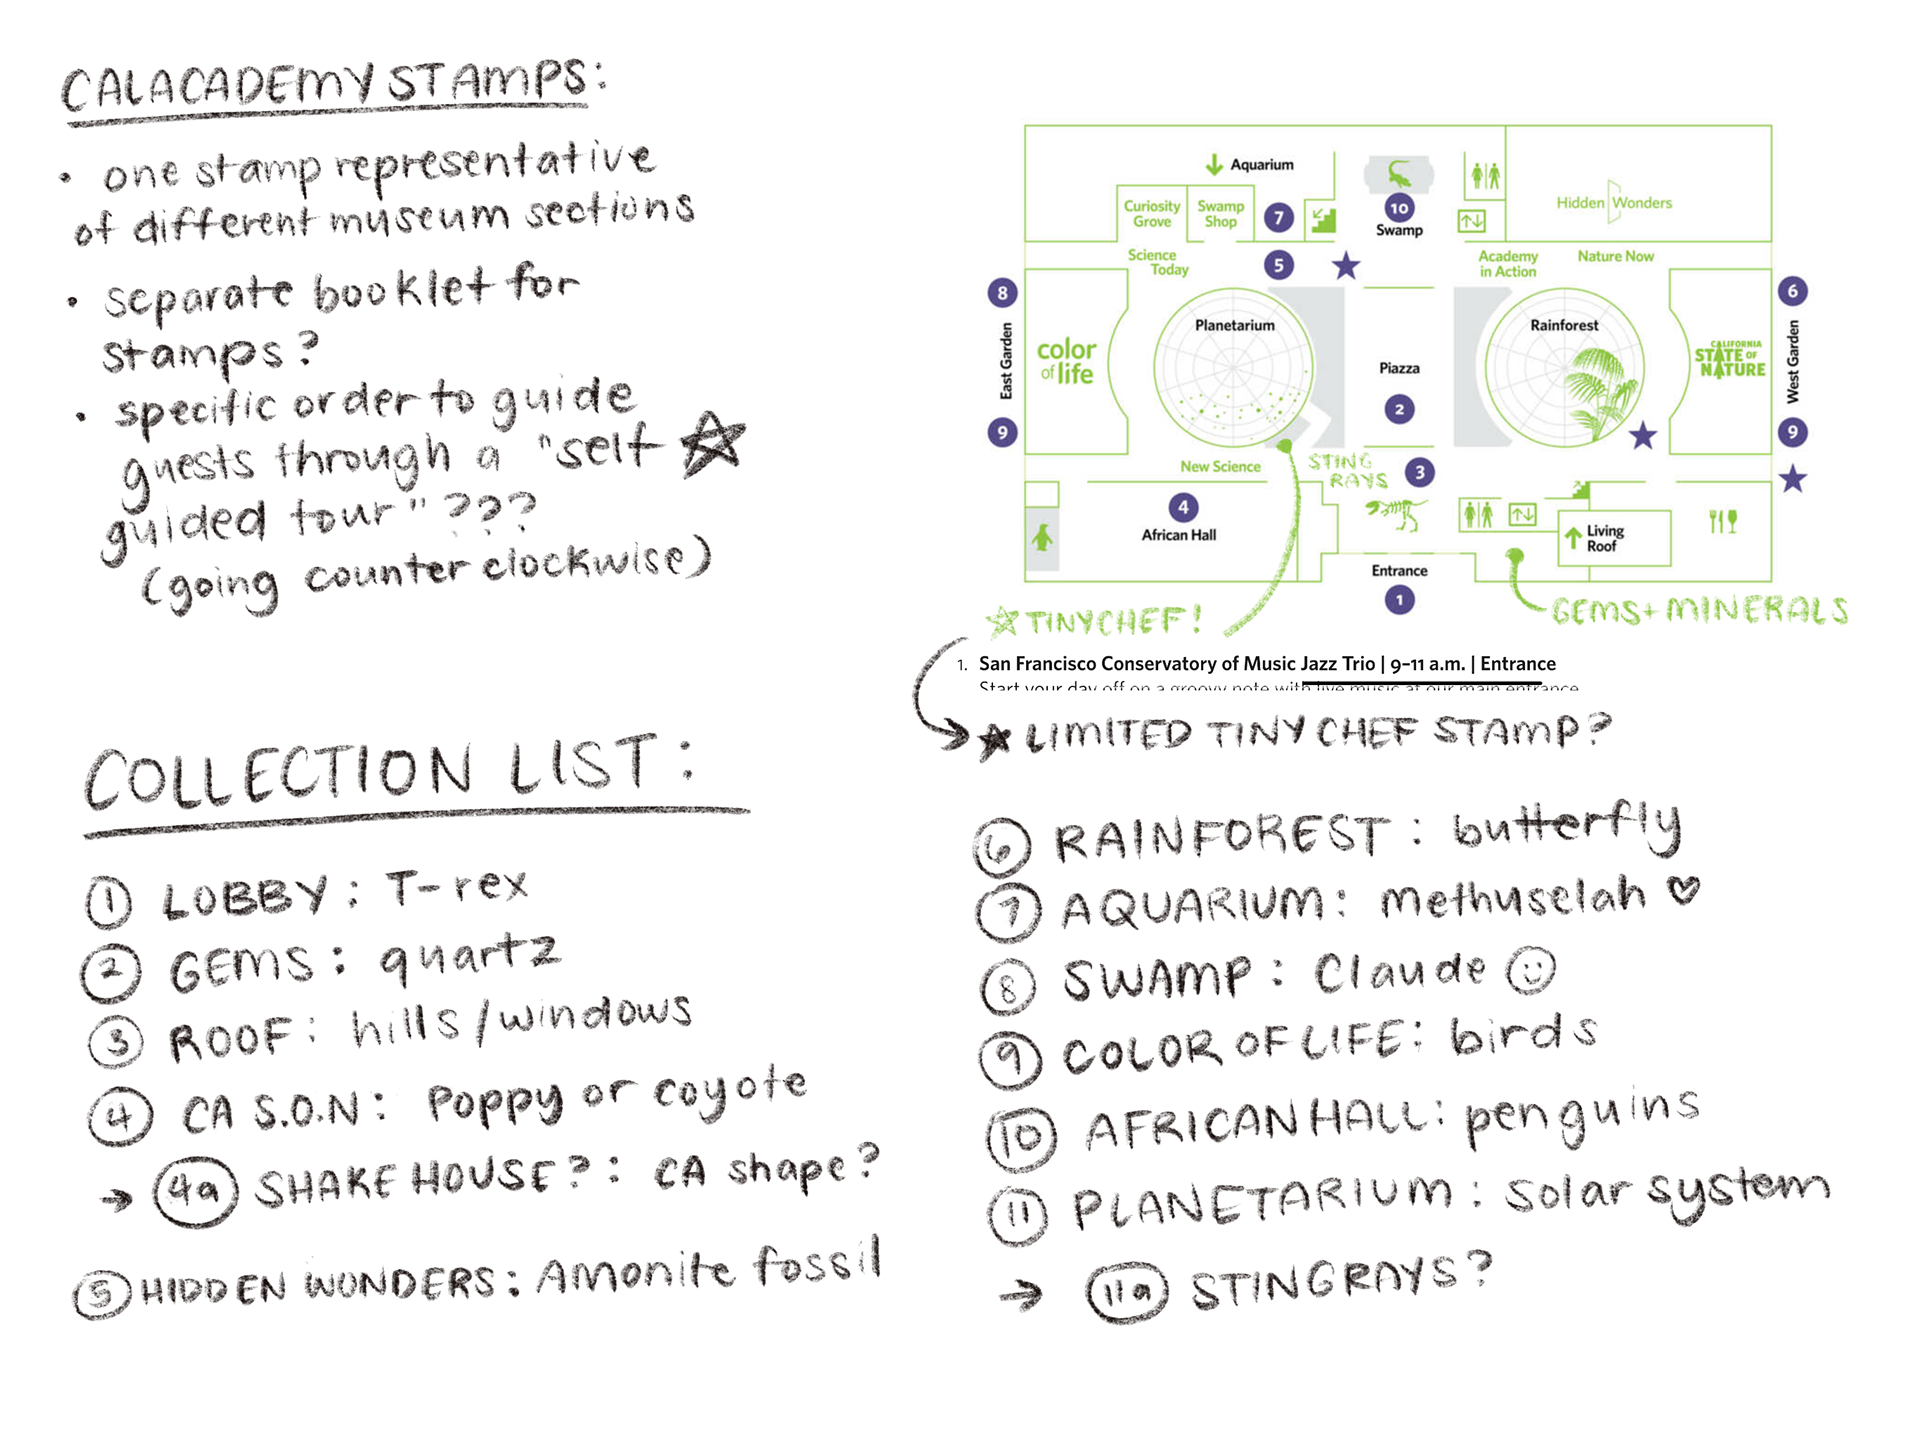 CALACADEMY STAMPS:
• one stamp representative
of different museum sections
• separate booklet for
stamps?
• specific order to guide
guests through a "self
guided tour" ???
(going counter clockwise)
Aquarium
Curiosity
Grove
Swamp
Shop
7
10
Swamp
Hidden Wonders
Science
Today
5
Academy
in Action
Nature Now
8
East Garden
9
color
of life
Planetarium
Piazza
2
Rainforest
CALIFORNIA
STATE OF
NATURE
6
West Garden
9
New Science
STING
RAYS
3
4
African Hall
Living
Roof
Entrance
1
TINYCHEF!
GEMS + MINERALS
1. San Francisco Conservatory of Music Jazz Trio | 9–11 a.m. | Entrance
Start your day off on a groovy note with live music at our main entrance
LIMITED TINY CHEF STAMP?
COLLECTION LIST:
1 LOBBY: T-rex
2 GEMS: quartz
3 ROOF: hills/windows
4 CA S.O.N: Poppy or coyote
→ 4a SHAKE HOUSE?: CA shape?
5 HIDDEN WONDERS: Amonite fossil
6 RAINFOREST: butterfly
7 AQUARIUM: methuselah ♡
8 SWAMP: Claude ☺
9 COLOR OF LIFE: birds
10 AFRICAN HALL: penguins
11 PLANETARIUM: solar system
→ 11a STINGRAYS?